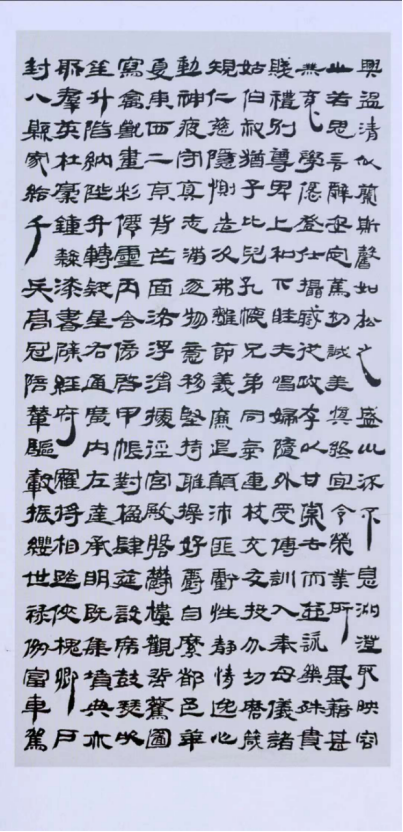 興溫清似蘭斯馨如松之盛川流不息淵澄取映容
止若思言辭安定篤初誠美慎終宜令榮業所基藉甚
無竟學優登仕攝職從政存以甘棠去而益詠樂殊貴
賤禮別尊卑上和下睦夫唱婦隨外受傅訓入奉母儀諸
姑伯叔猶子比兒孔懷兄弟同氣連枝交友投分切磨箴
規仁慈隱惻造次弗離節義廉退顛沛匪虧性靜情逸心
動神疲守真志滿逐物意移堅持雅操好爵自縻都邑華
夏東西二京背芒面洛浮渭據涇宮殿盤鬱樓觀飛驚圖
寫禽獸畫彩仙靈丙舍傍啓甲帳對楹肆筵設席鼓瑟吹
笙升階納陛弁轉疑星右通廣內左達承明既集墳典亦
聚羣英杜稾鍾隸漆書壁經府羅將相路俠槐卿戶
封八縣家給千兵高冠陪輦驅轂振纓世祿侈富車駕